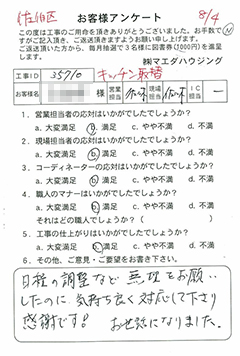 佐伯区
お客様アンケート
8/4
この度は工事のご用命を頂きありがとうございました。お手数で
すがご記入頂き、ご返送頂きますようお願い申し上げます。
ご返送頂いた方から、毎月抽選で3名様に図書券(1000円)を進呈
します。
㈱マエダハウジング
工事ID 35710 キッチン取替
お客様名 様 営業担当 現場担当 IC担当 ー
1. 営業担当者の応対はいかがでしたでしょうか?
a. 大変満足 b. 満足 c. やや不満 d. 不満
2. 現場担当者の応対はいかがでしたでしょうか?
a. 大変満足 b. 満足 c. やや不満 d. 不満
3. コーディネーターの応対はいかがでしたでしょうか?
a. 大変満足 b. 満足 c. やや不満 d. 不満
4. 職人のマナーはいかがでしたでしょうか?
a. 大変満足 b. 満足 c. やや不満 d. 不満
それはどの職人でしょうか?( )
5. 工事の仕上がりはいかがでしたでしょうか?
a. 大変満足 b. 満足 c. やや不満 d. 不満
6. その他、ご意見・ご要望をお書き下さい。
日程の調整など無理をお願い
したのに気持ち良く対応して下さり
感謝です! お世話になりました。